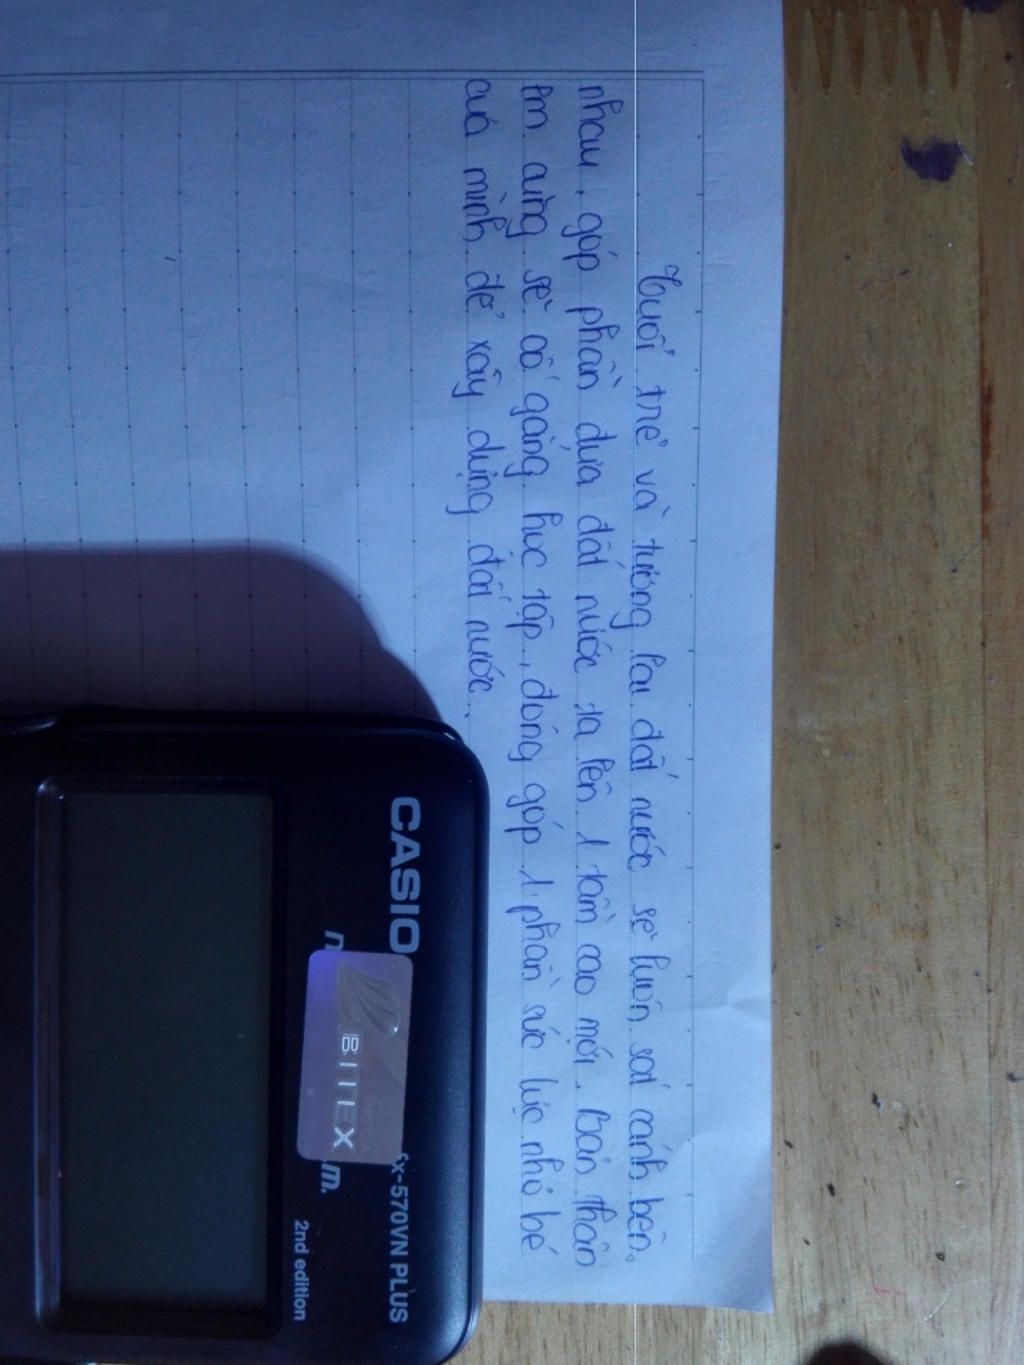 Tuổi trẻ và tương lai đất nước sẽ luôn sát cánh bên
nhau, góp phần đưa đất nước ta lên 1 tầm cao mới. Bản thân
em cũng sẽ cố gắng học tập, đóng góp 1 phần sức lực nhỏ bé
của mình để xây dựng đất nước.
CASIO
fx-570VN PLUS
2nd edition
BITEX